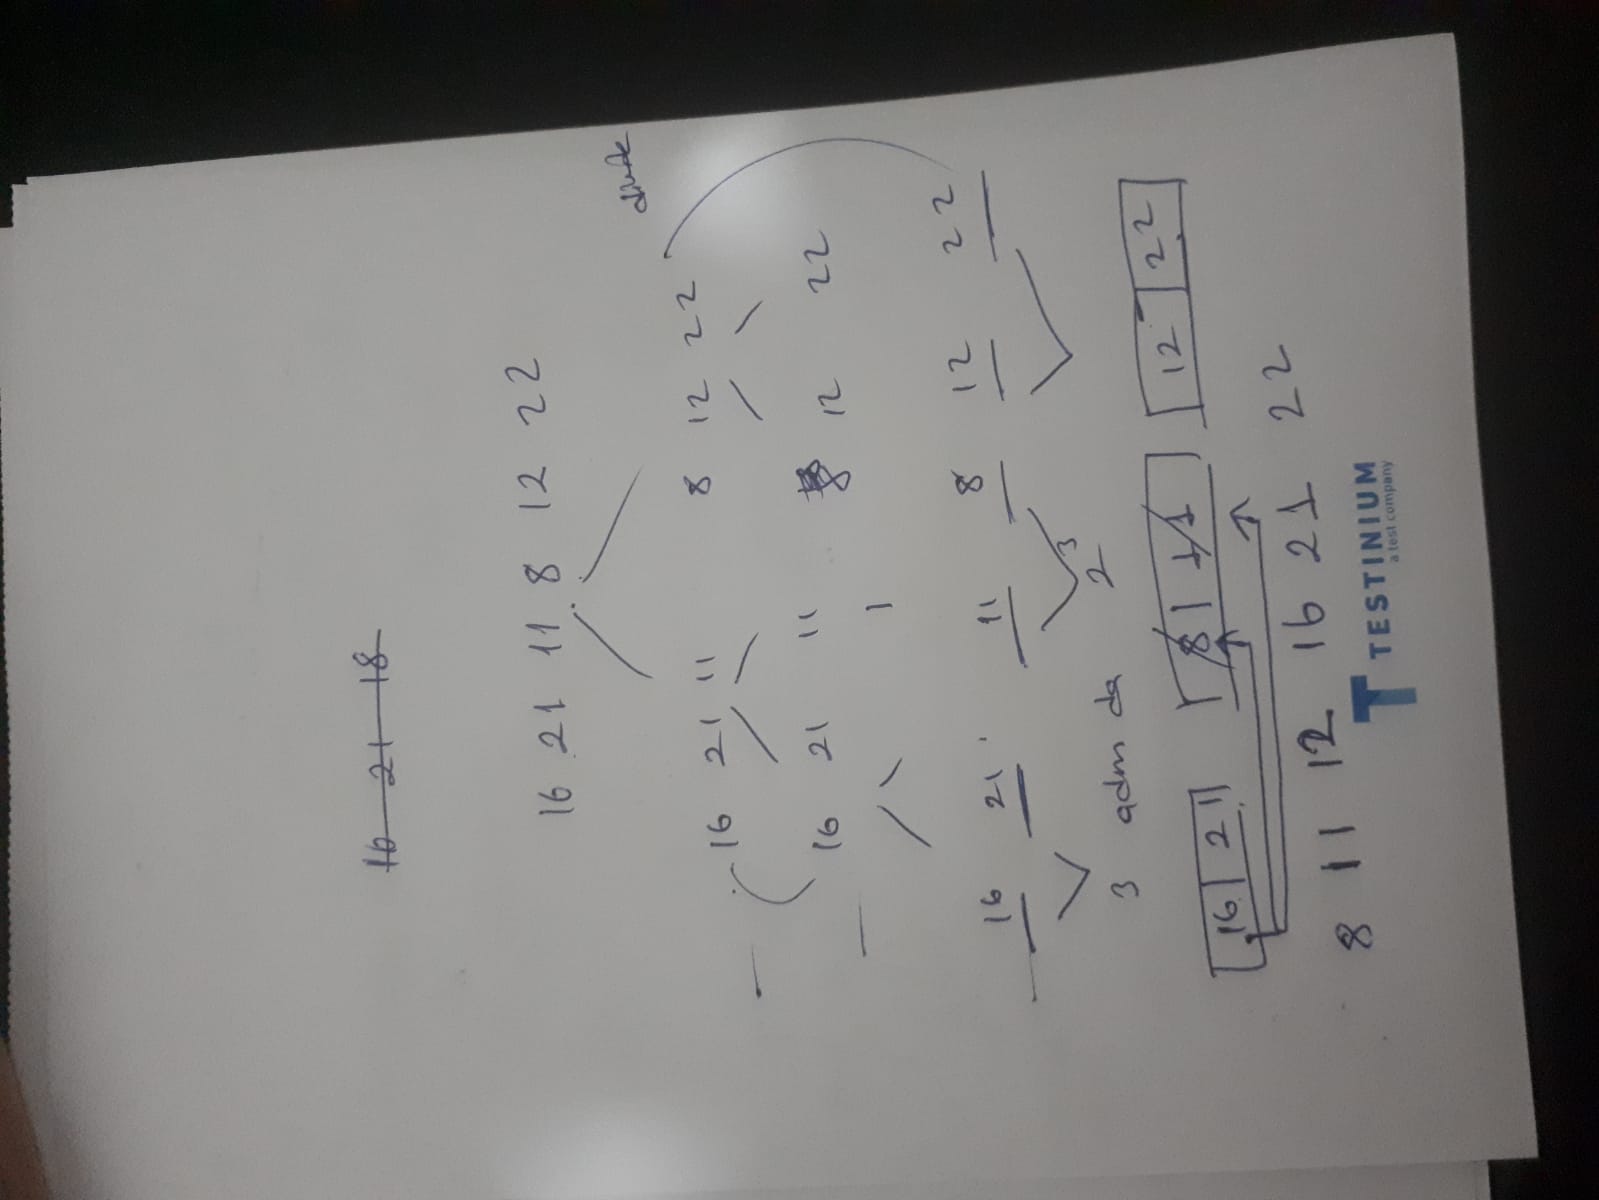 16 21 18
16 21 11 8 12 22
16 21 11 8 12 22
16 21 11 8 12 22
1
16 21 11 8 12 22
3 adım da 2 3
16 21 8 11 12 22
8 11 12 16 21 22
TESTINIUM
a test company